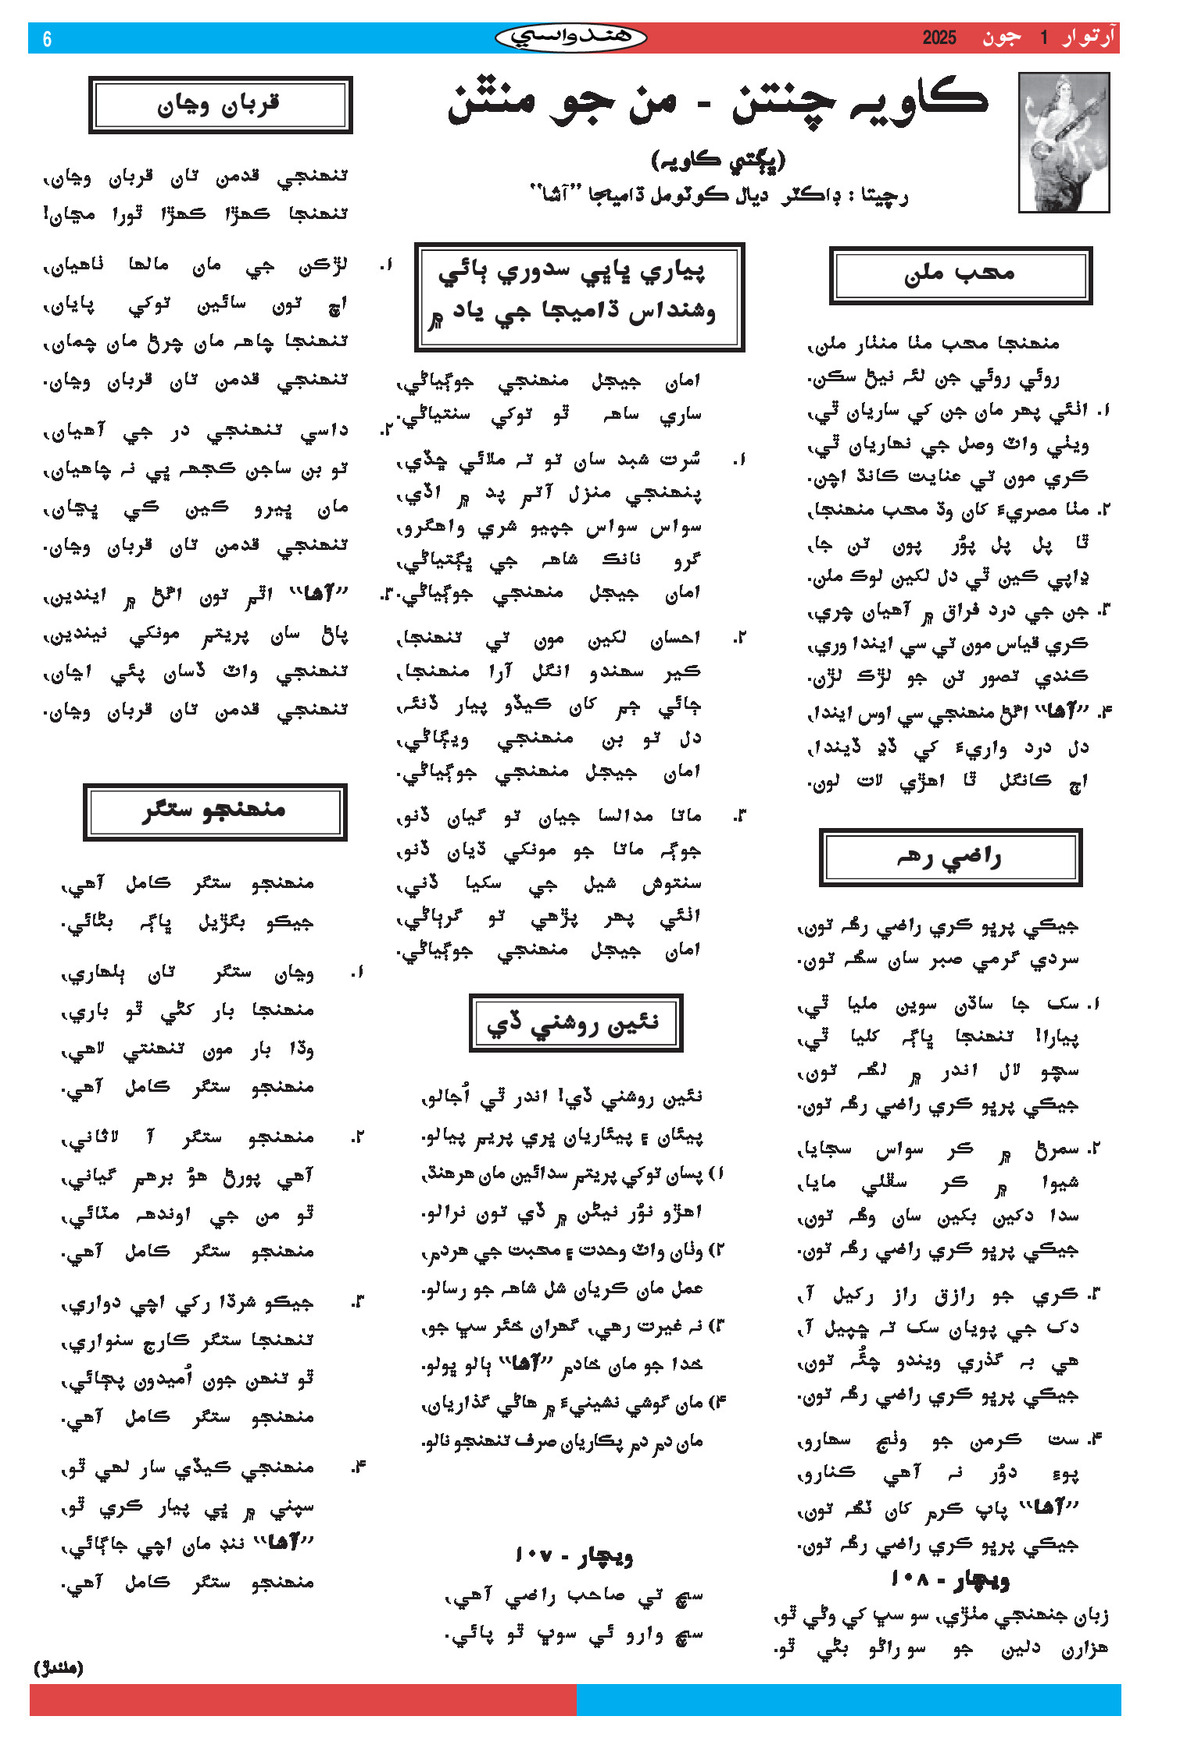 آرتوار 1 جون 2025
هندواسي
6
ڪاويہ چنتن - من جو منٿن
(ڀڳتي ڪاويہ)
رچيتا : ڊاڪٽر ديال ڪوٽومل ڌاميجا ”آشا“
محب ملن
منهنجا محب مٺا منٺار ملن،
روئي روئي جن لئہ نيڻ سڪن.
۱. اٺئي پهر مان جن کي ساريان ٿي،
ويٺي واٽ وصل جي نهاريان ٿي،
ڪري مون تي عنايت ڪانڌ اچن.
۲. مٺا مصريءَ کان وڌ محب منهنجا،
ٿا پل پل پوُر پون تن جا،
ڍاپي ڪين ٿي دل لکين لوڪ ملن.
۳. جن جي درد فراق ۾ آهيان چري،
ڪري قياس مون تي سي ايندا وري،
ڪندي تصور تن جو لڙڪ لڙن.
۴. ”آشا“ اڱڻ منهنجي سي اوس ايندا،
دل درد واريءَ کي ڏڍ ڏيندا،
اڄ ڪانگل ٿا اهڙي لات لون.
راضي رهہ
جيڪي پرڀو ڪري راضي رهُہ تون،
سردي گرمي صبر سان سهُہ تون.
۱. سک جا ساڌن سوين مليا ٿي،
پيارا! تنهنجا ڀاڳہ کليا ٿي،
سچو لال اندر ۾ لهُہ تون،
جيڪي پرڀو ڪري راضي رهُہ تون.
۲. سمرڻ ۾ ڪر سواس سجايا،
شيوا ۾ ڪر سڦلي مايا،
سدا دکين بکين سان وهُہ تون،
جيڪي پرڀو ڪري راضي رهُہ تون.
۳. ڪري جو رازق راز رکيل آ،
دک جي پويان سک تہ ڇپيل آ،
هي بہ گذري ويندو چئُہ تون،
جيڪي پرڀو ڪري راضي رهُہ تون.
۴. ست ڪرمن جو وٺج سهارو،
پوءِ دوُر نہ آهي ڪنارو،
”آشا“ پاپ ڪرم کان ٽهُہ تون،
جيڪي پرڀو ڪري راضي رهُہ تون.
ويچار - ۱۰۸
زبان جنهنجي مٺڙي، سو سڀ کي وڻي ٿو،
هزارن دلين جو سو راڻو بڻي ٿو.
پياري ڀاڀي سدوري ٻائي
وشنداس ڌاميجا جي ياد ۾
امان جيجل منهنجي جوڳياڻي،
ساري ساهہ ٿو توکي سنتياڻي.
۱. سُرت شبد سان تو تہ ملائي ڇڏي،
پنهنجي منزل آتم پد ۾ اڏي،
سواس سواس جپيو شري واهگرو،
گرو نانڪ شاهہ جي ڀڳتياڻي،
امان جيجل منهنجي جوڳياڻي.
۲. احسان لکين مون تي تنهنجا،
ڪير سهندو انگل آرا منهنجا،
ڄائي ڄم کان ڪيڏو پيار ڏنئہ،
دل تو بن منهنجي ويڳاڻي،
امان جيجل منهنجي جوڳياڻي.
۳. ماتا مدالسا جيان تو گيان ڏنو،
جوڳہ ماتا جو مونکي ڌيان ڏنو،
سنتوش شيل جي سکيا ڏني،
اٺئي پهر پڙهي تو گرٻاڻي،
امان جيجل منهنجي جوڳياڻي.
نئين روشني ڏي
نئين روشني ڏي! اندر ٿي اُجالو،
پيئان ۽ پيئاريان ڀري پريم پيالو.
۱) پسان توکي پريتم سدائين مان هرهنڌ،
اهڙو نوُر نيڻن ۾ ڏي تون نرالو.
۲) وٺان واٽ وحدت ۽ محبت جي هردم،
عمل مان ڪريان شل شاهہ جو رسالو.
۳) نہ غيرت رهي، گهران خئر سڀ جو،
خدا جو مان خادم ”آشا“ ٻالو ڀولو.
۴) مان گوشي نشينيءَ ۾ هاڻي گذاريان،
مان دم دم پڪاريان صرف تنهنجو نالو.
ويچار - ۱۰۷
سچ تي صاحب راضي آهي،
سچ وارو ئي سوڀ ٿو پائي.
قربان وڃان
تنهنجي قدمن تان قربان وڃان،
تنهنجا ڪهڙا ڪهڙا ٿورا مڃان!
۱. لڙڪن جي مان مالها ٺاهيان،
اڄ تون سائين توکي پايان،
تنهنجا چاهہ مان چرڻ مان چمان،
تنهنجي قدمن تان قربان وڃان.
۲. داسي تنهنجي در جي آهيان،
تو بن ساجن ڪجهہ ڀي نہ چاهيان،
مان ڀيرو ڪين کي ڀڃان،
تنهنجي قدمن تان قربان وڃان.
۳. ”آشا“ اٿم تون اڱڻ ۾ ايندين،
پاڻ سان پريتم مونکي نيندين،
تنهنجي واٽ ڏسان پئي اڃان،
تنهنجي قدمن تان قربان وڃان.
منهنجو ستگر
منهنجو ستگر ڪامل آهي،
جيڪو بگڙيل ڀاڳہ بڻائي.
۱. وڃان ستگر تان ٻلهاري،
منهنجا بار کڻي ٿو باري،
وڏا بار مون تنهنتي لاهي،
منهنجو ستگر ڪامل آهي.
۲. منهنجو ستگر آ لاثاني،
آهي پورڻ هوُ برهم گياني،
ٿو من جي اوندهہ مٽائي،
منهنجو ستگر ڪامل آهي.
۳. جيڪو شرڌا رکي اچي دواري،
تنهنجا ستگر ڪارج سنواري،
ٿو تنهن جون اُميدون پڄائي،
منهنجو ستگر ڪامل آهي.
۴. منهنجي ڪيڏي سار لهي ٿو،
سپني ۾ ڀي پيار ڪري ٿو،
”آشا“ ننڊ مان اچي جاڳائي،
منهنجو ستگر ڪامل آهي.
(هلندڙ)